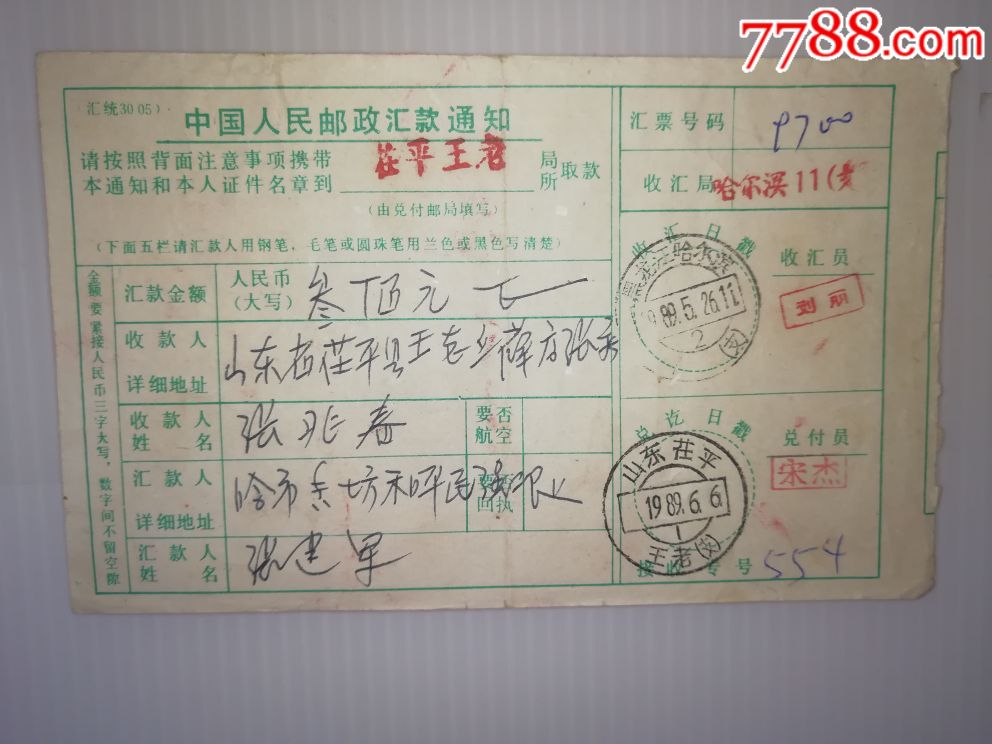 7788.com
汇统3005）
中国人民邮政汇款通知
请按照背面注意事项携带
本通知和本人证件名章到
茌平王老
局
所
取款
（由兑付邮局填写）
（下面五栏请汇款人用钢笔，毛笔或圆珠笔用兰色或黑色写清楚）
金额要紧接人民币三字大写，数字间不留空隙
汇款金额
人民币
（大写）
叁佰元
收款人
详细地址
山东省茌平县王老乡薛
收款人
姓名
张兆春
要否
航空
汇款人
详细地址
哈市
要否
回执
汇款人
姓名
张建军
汇票号码
9700
收汇局
哈尔滨11(支
收汇日戳
黑龙江哈尔滨
1989.5.26.11
2
(支)
收汇员
刘丽
兑讫日戳
山东茌平
1989.6.6.
1
王老(支)
兑付员
宋杰
接收专号
554